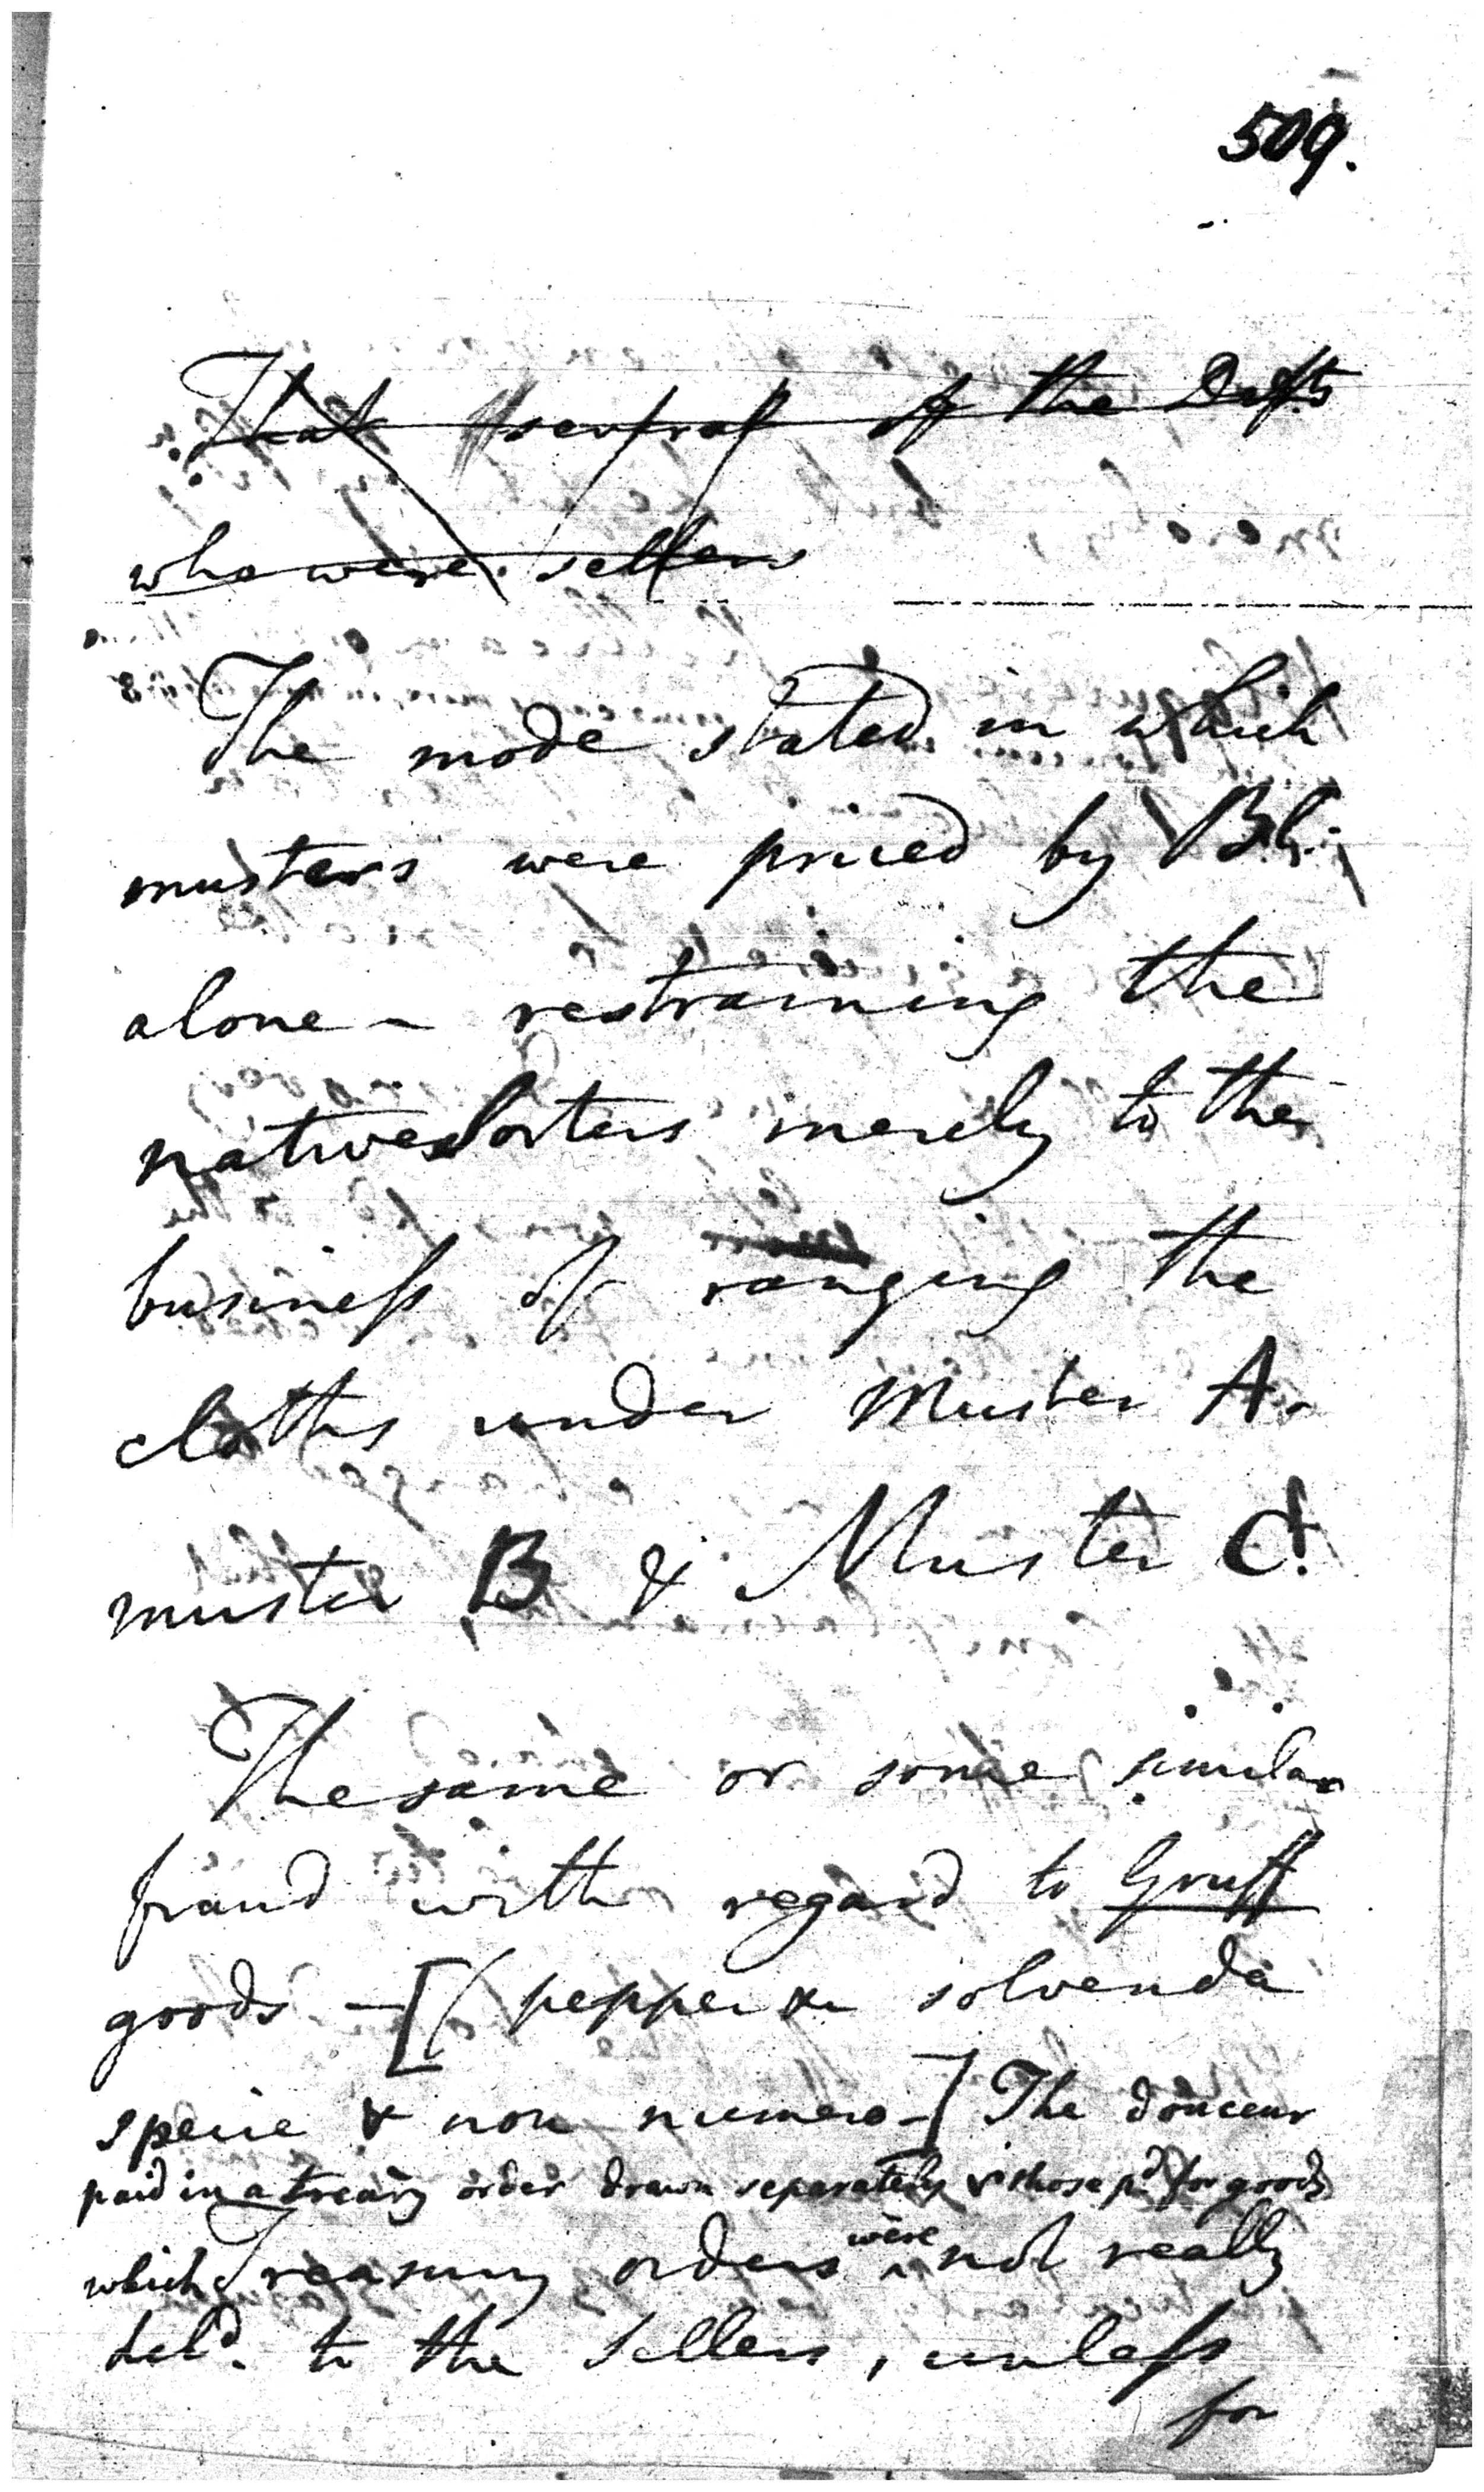 509.
That several of the Defts
who were sellers
The mode stated in which
musters were priced by Bl:
alone – restraining the
native sorters merely to the
business of ranging the
cloths under Muster A.
muster B & Muster C.
The same or some similar
fraud with regard to Gruff
goods – [(pepper &c solvenda
specie & non numero –] The douceur
paid in a treasy order drawn separately & those pd. for goods
which Treasury orders were not really
deld. to the sellers, unless
for